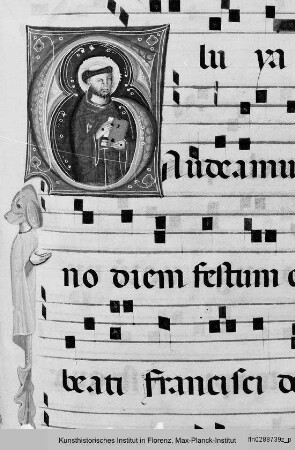 lu ya
Gaudeamu
no diem festum
beati francisci d
Kunsthistorisches Institut in Florenz, Max-Planck-Institut
fln0288739z_p